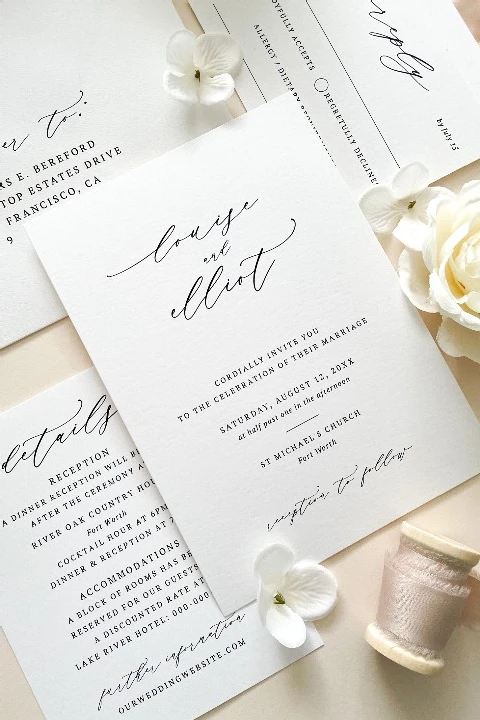 to:
E. BEREFORD
TOP ESTATES DRIVE
FRANCISCO, CA
9
reply
by July 15
JOYFULLY ACCEPTS
REGRETFULLY DECLINES
ALLERGY / DIETARY
louise
and
elliot
CORDIALLY INVITE YOU
TO THE CELEBRATION OF THEIR MARRIAGE
SATURDAY, AUGUST 12, 20XX
at half past one in the afternoon
ST MICHAEL'S CHURCH
Fort Worth
reception to follow
details
RECEPTION
A DINNER RECEPTION WILL BE
AFTER THE CEREMONY A
RIVER OAK COUNTRY HOU
Fort Worth
COCKTAIL HOUR AT 6PM
DINNER & RECEPTION AT 7
ACCOMMODATIONS
A BLOCK OF ROOMS HAS BE
RESERVED FOR OUR GUESTS
A DISCOUNTED RATE AT
LAKE RIVER HOTEL: 000-000
further information
OURWEDDINGWEBSITE.COM